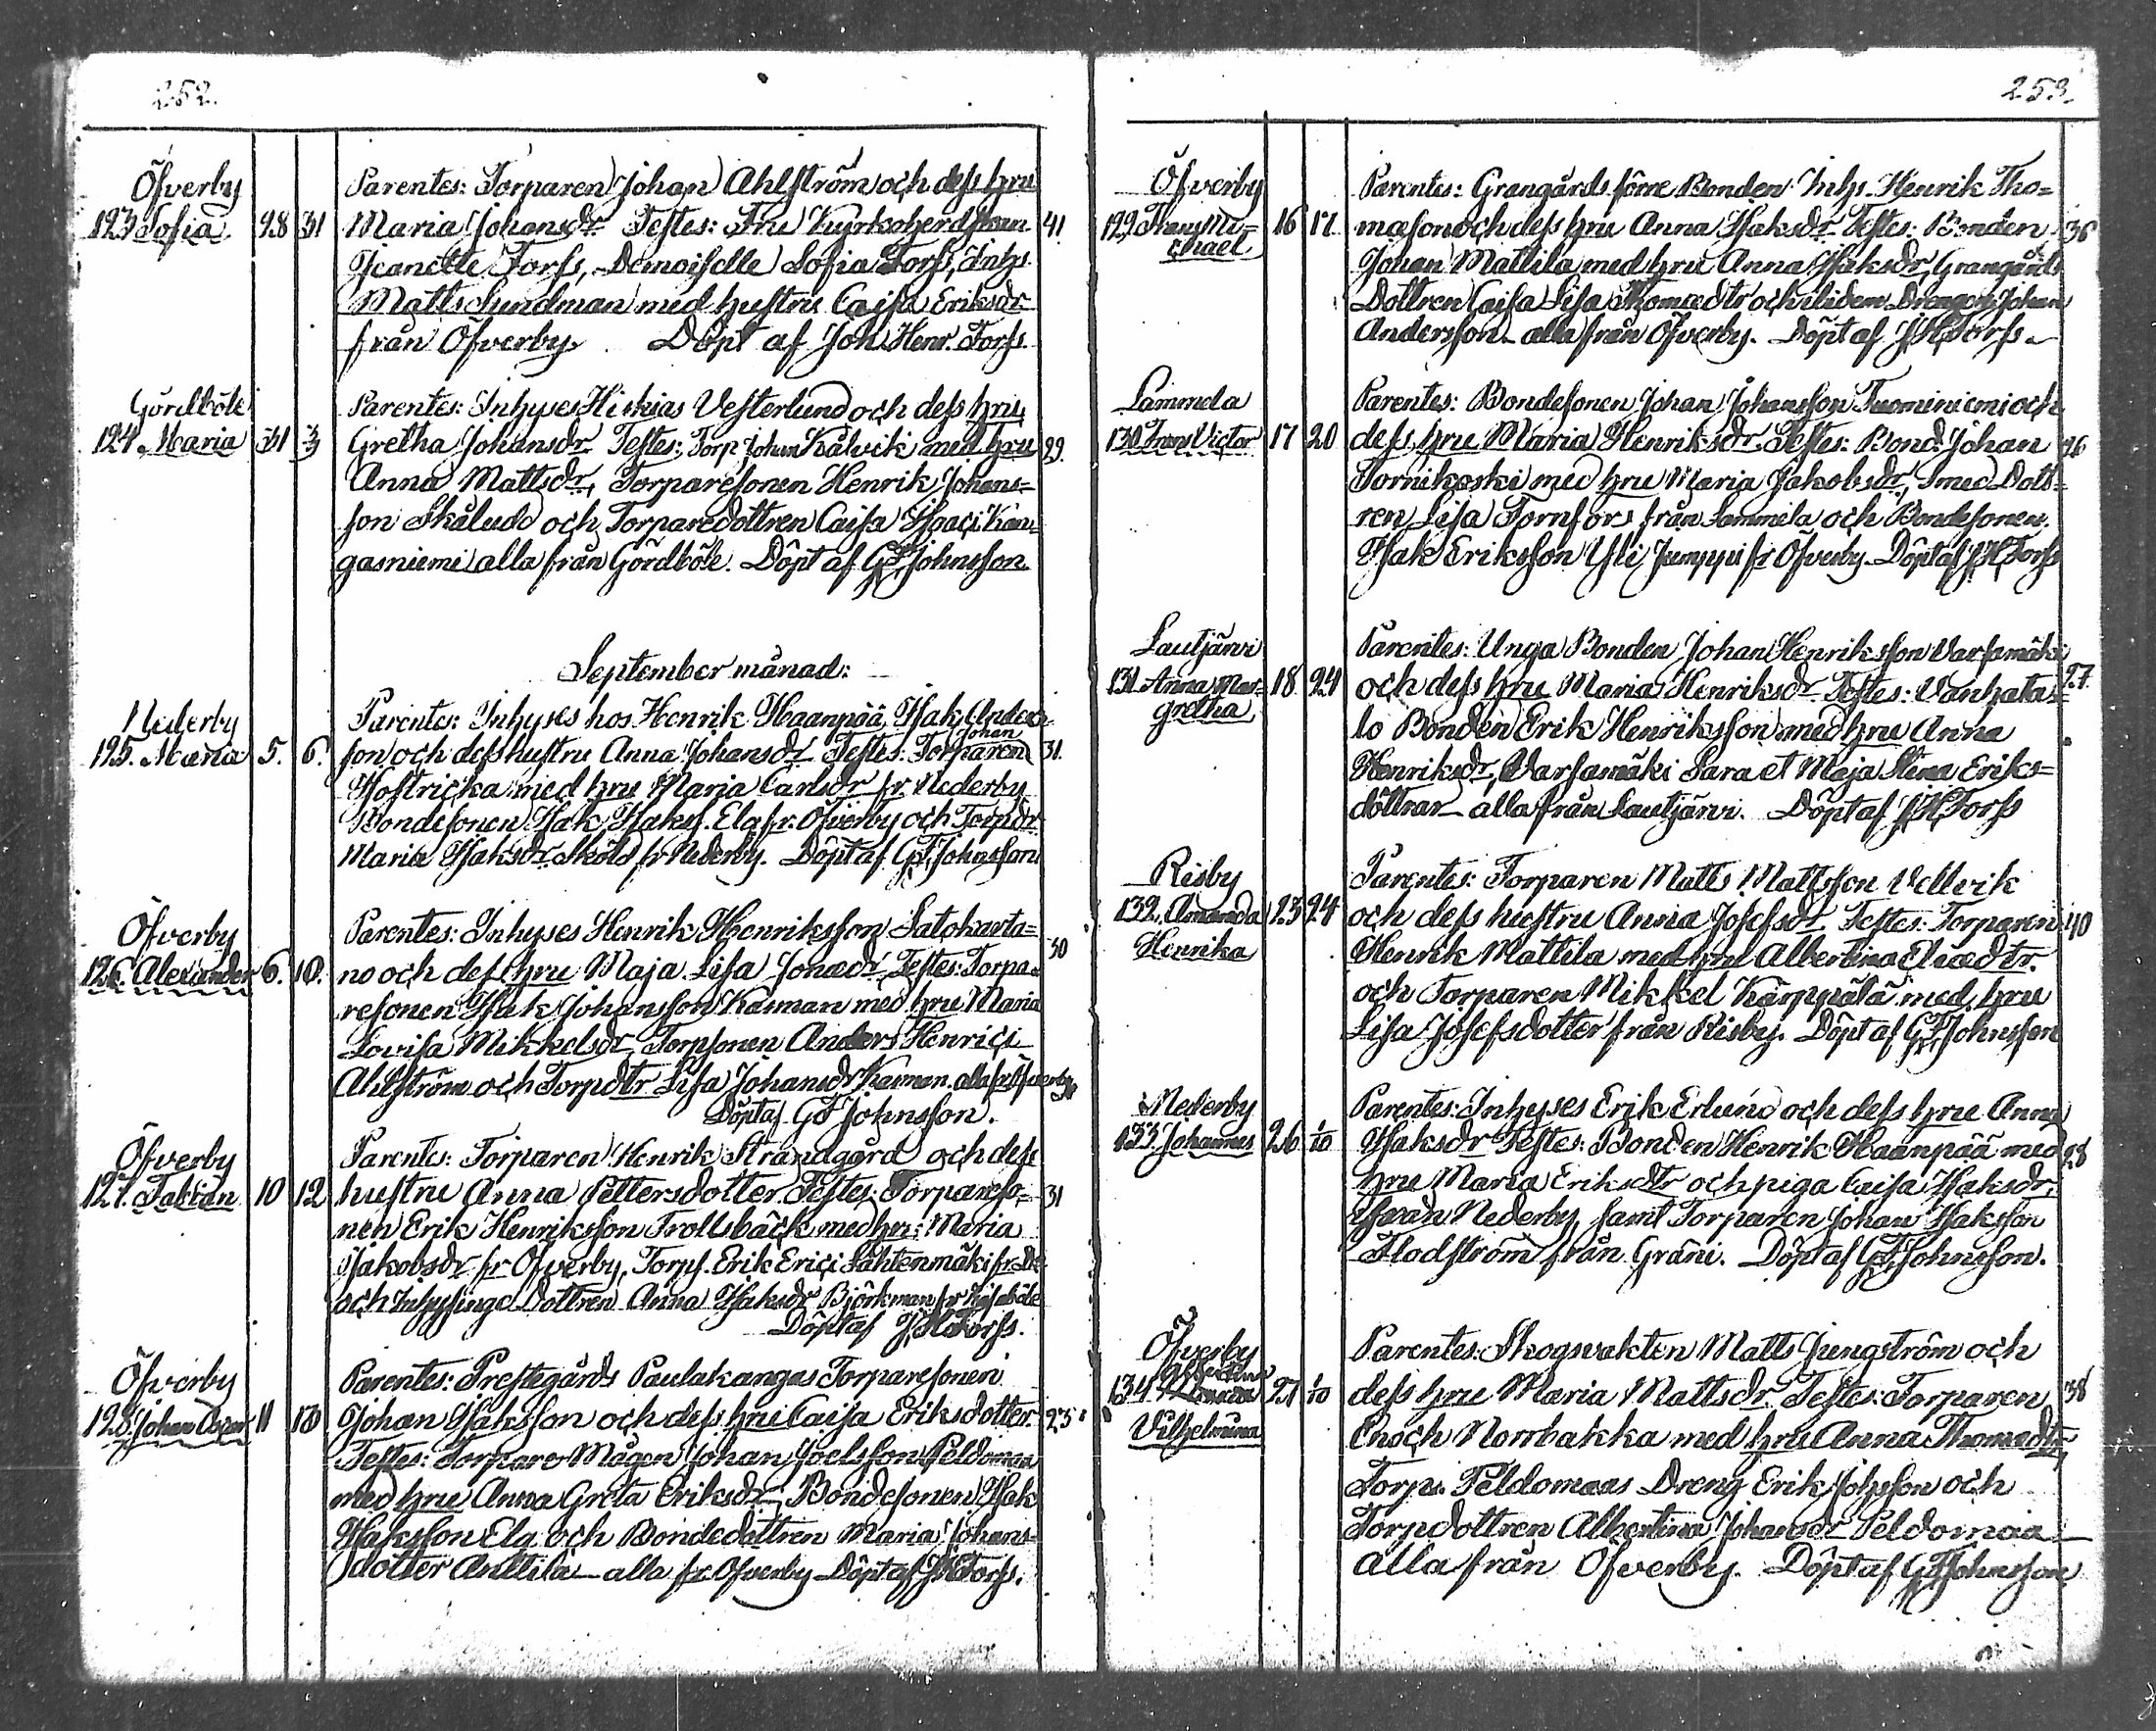 252.
Öfverby
123 Sofia 28 31 41
Parentes: Torparen Johan Ahlström och dess hru
Maria Johansdr Testes: Fru Kyrkoherdskan
Jeanette Forss, Demoiselle Sofia Forss, Inhs
Matts Lindman med hustru Caisa Eriksdr
från Öfverby. Döpt af Joh. Henr. Forss.
Gördböle
124 Maria 31 3 29
Parentes: Inhyses Hiskias Vesterlund och dess hru
Gretha Johansdr Testes: Torp Johan Kålvik med hru
Anna Mattsdr, Torparesonen Henrik Johans=
son Skålud och Torparedottren Caisa Isaaci Kan=
gasniemi alla från Gördböle. Döpt af GF Johnsson
September månad:
Nederby
125. Maria 5. 6. 31.
Parentes: Inhyses hos Henrik Haanpää, Isak Anders
son och dess hustru Anna Johansdr Testes: Torparen Johan
Hostricka med hru Maria Carlsdr fr. Nederby
Bondesonen Isak Isaks. Elg fr. Öfverby och Torpdr
Maria Isaksdr Sköld fr Nederby. Döpt af GF Johnsson
Öfverby
126. Alexander 6. 10. 30
Parentes: Inhyses Henrik Henriksson Latokarta=
no och dess hru Maja Lisa Jonædr. Testes: Torpa=
resonen Isak Johansson Kasman med hru Maria
Lovisa Mikkelsdr, Torpsonen Anders Henrici
Ahlström och Torpdtr Lisa Johansdr Kasman. alla fr Öfverby
Döpt af GF Johnsson.
Öfverby
127. Fabian 10 12 31
Parentes: Torparen Henrik Strandgård och dess
hustru Anna Pettersdotter. Testes: Torpareso=
nen Erik Henriksson Trollsbäck med hru: Maria
Jakobsdr fr Öfverby, Torps. Erik Erici Lähtenmäki fr
och Inhysinge Dottren Anna Isaksdr Björkman fr
Döpt af JH Forss.
Öfverby
128. Johan Oscar 11 13 23
Parentes: Prestegårds Paulakangas Torparesonen
Johan Isaksson och dess hru Caisa Eriksdotter.
Testes: Torpare Mågen Johan Joelsson Peldomaa
med hru Anna Greta Eriksdr, Bondesonen Isak
Isaksson Elg och Bondedottren Maria Johans=
dotter Anttila alla fr Öfverby Döpt af JH Forss.
253.
Öfverby
129. Frans Mi=
chael 16 17 36
Parentes: Grangårds förre Bonden Inhs. Henrik Tho=
mæson och dess hru Anna Isaksdr Testes: Bonden
Johan Mattila med hru Anna Isaksdr, Grangårds
Dottren Caisa Lisa Thomædtr och ibidem Drengen Johan
Andersson alla från Öfverby. Döpt af JH Forss.
Lammela
130 Frans Victor 17 20 26
Parentes: Bondesonen Johan Johansson Tuominiemi och
dess hru Maria Henriksdr. Testes: Bond. Johan
Tornikoski med hru Maria Jakobsdr, Smed Dott=
ren Lisa Tornfors från Lammela och Bondesonen
Isak Eriksson Yli Jumppi fr Öfverby Döpt af JH Forss
Lautjärvi
131 Anna Mar=
gretha 18 24 27.
Parentes: Unga Bonden Johan Henriksson Varsamäki
och dess hru Maria Henriksdr Testes: Vanhata=
lo Bonden Erik Henriksson med hru Anna
Henriksdr, Varsamäki Sara et Maja Stina Eriks=
döttrar alla från Lautjärvi. Döpt af JH Forss
Risby
132. Amanda
Henrika 23 24 40
Parentes: Torparen Matts Mattsson Vellvik
och dess hustru Anna Josefsdr Testes: Torparen
Henrik Mattila med hru Albertina Eliædtr.
och Torparen Mikkel Kärppälä med hru
Lisa Josefsdotter från Risby. Döpt af GF Johnsson
Nederby
133. Johannes 26 1/10 28
Parentes: Inhyses Erik Erlund och dess hru Anna
Isaksdr Testes: Bonden Henrik Haanpää med
hru Maria Eriksdtr och piga Caisa Isaksdr,
från Nederby, samt Torparen Johan Isaksson
Flodström från Gräni. Döpt af GF Johnsson.
Öfverby
134 Albertina
Vilhelmina 27 1/10 38
Parentes: Skogsvakten Matts Ljungström och
dess hru Maria Mattsdr Testes: Torparen
Enoch Norrbakka med hru Anna Thomædtr,
Torp. Peldomaas Dreng Erik Johsson och
Torpdottren Albertina Johansdr Peldomaa
alla från Öfverby. Döpt af GF Johnsson